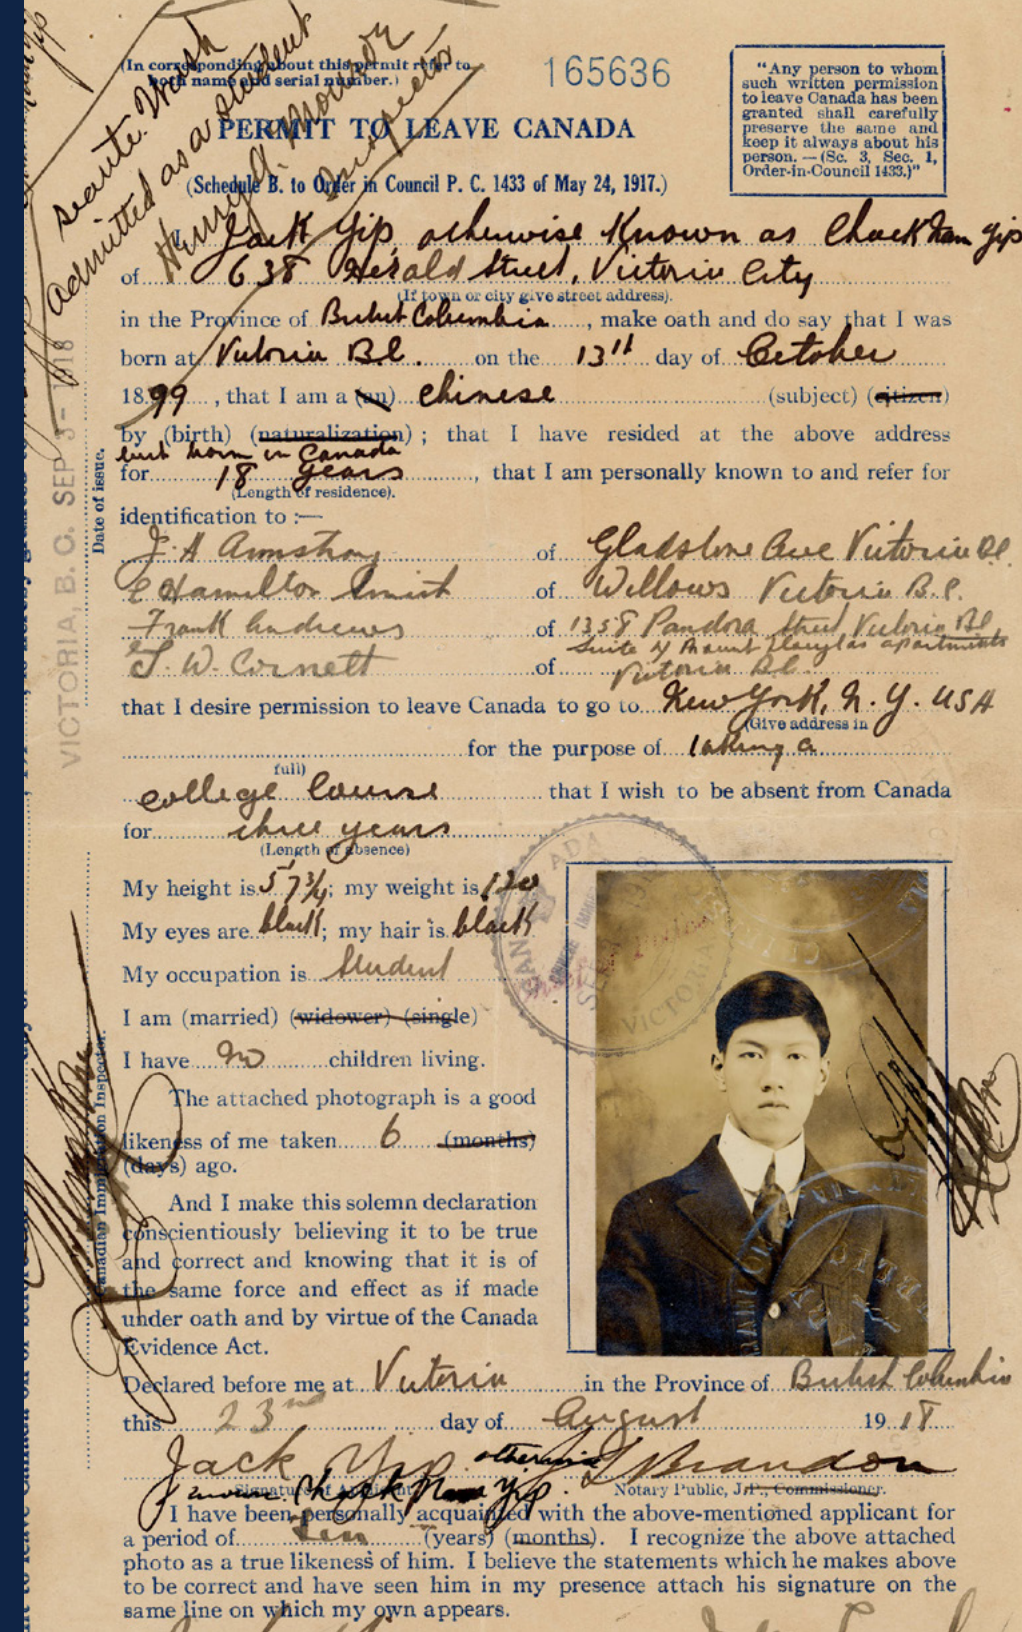 (In corresponding about this permit refer to
both name and serial number.)
165636
"Any person to whom
such written permission
to leave Canada has been
granted shall carefully
preserve the same and
keep it always about his
person. — (Sc. 3, Sec. 1,
Order-in-Council 1433.)"
Seattle. Wash
admitted as a student
Inspector
PERMIT TO LEAVE CANADA
(Schedule B. to Order in Council P. C. 1433 of May 24, 1917.)
I Jack Yip, otherwise Known as Chuck Nam Yip
of 638 Herald Street, Victoria City
(If town or city give street address).
in the Province of British Columbia, make oath and do say that I was
born at Victoria B.C. on the 13th day of October
1899, that I am a (an) Chinese (subject) (citizen)
by (birth) (naturalization); that I have resided at the above address
but born in Canada
for 18 years, that I am personally known to and refer for
(Length of residence).
identification to :—
J. H Armstrong of Gladstone Ave Victoria B.C.
C Hamilton Smith of Willows Victoria B.C.
Frank Andrews of 1358 Pandora Street Victoria B.C.
T. W. Cornett of Suite 4 Mount Douglas apartments
Victoria B.C.
that I desire permission to leave Canada to go to New York, N. Y. USA
(Give address in
for the purpose of taking a
full)
college Course that I wish to be absent from Canada
for three years
(Length of absence)
My height is 5' 7 3/4; my weight is 120
My eyes are black; my hair is black
My occupation is Student
I am (married) (widower) (single)
I have no children living.
The attached photograph is a good
likeness of me taken 6 (months)
(days) ago.
And I make this solemn declaration
conscientiously believing it to be true
and correct and knowing that it is of
the same force and effect as if made
under oath and by virtue of the Canada
Evidence Act.
Declared before me at Victoria in the Province of British Columbia
this 23rd day of August 1918
Jack Yip otherwise
Signature of Applicant
Notary Public, J.P., Commissioner.
I have been personally acquainted with the above-mentioned applicant for
a period of Ten (years) (months). I recognize the above attached
photo as a true likeness of him. I believe the statements which he makes above
to be correct and have seen him in my presence attach his signature on the
same line on which my own appears.
VICTORIA, B. C. SEP 3- 1918
Date of issue.
Canadian Immigration Inspector.